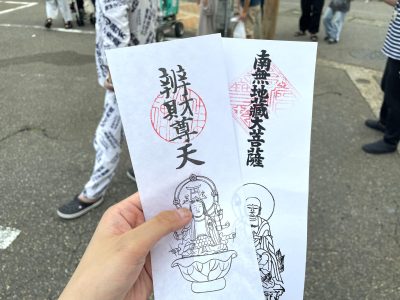 辨財尊天
南無地蔵大菩薩